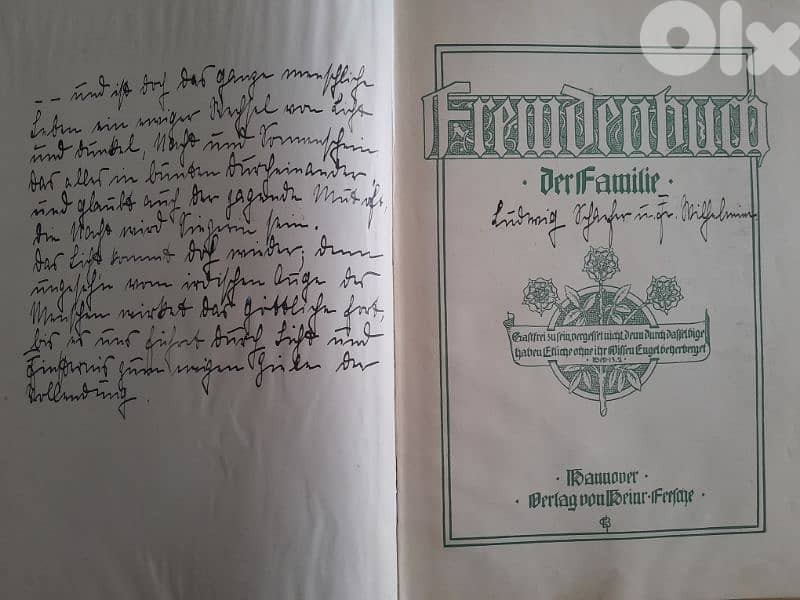 -- und ist doch das ganze menschliche
Leben ein ewiger Wechsel von Licht
und dunkel, Nacht und Sonnenschein
das alles in bunten durcheinander
und glaubt auch der zagende Mut oft,
die Nacht wird Siegerin sein.
das Licht kommt doch wieder; denn
ungesehn vom irdischen Auge des
Menschen wirket das göttliche fort,
bis es uns führet durch Licht und
Finsternis zum ewigen Ziele der
Vollendung.
Olx
Fremdenbuch
· der Familie ·
Ludwig Schaefer u. Fr. Wilhelmine
Gastfrei zu sein, vergesset nicht, denn durch dasselbige
haben Etliche ohne ihr Wissen Engel beherberget
· Hannover ·
· Verlag von Heinr. Feesche ·